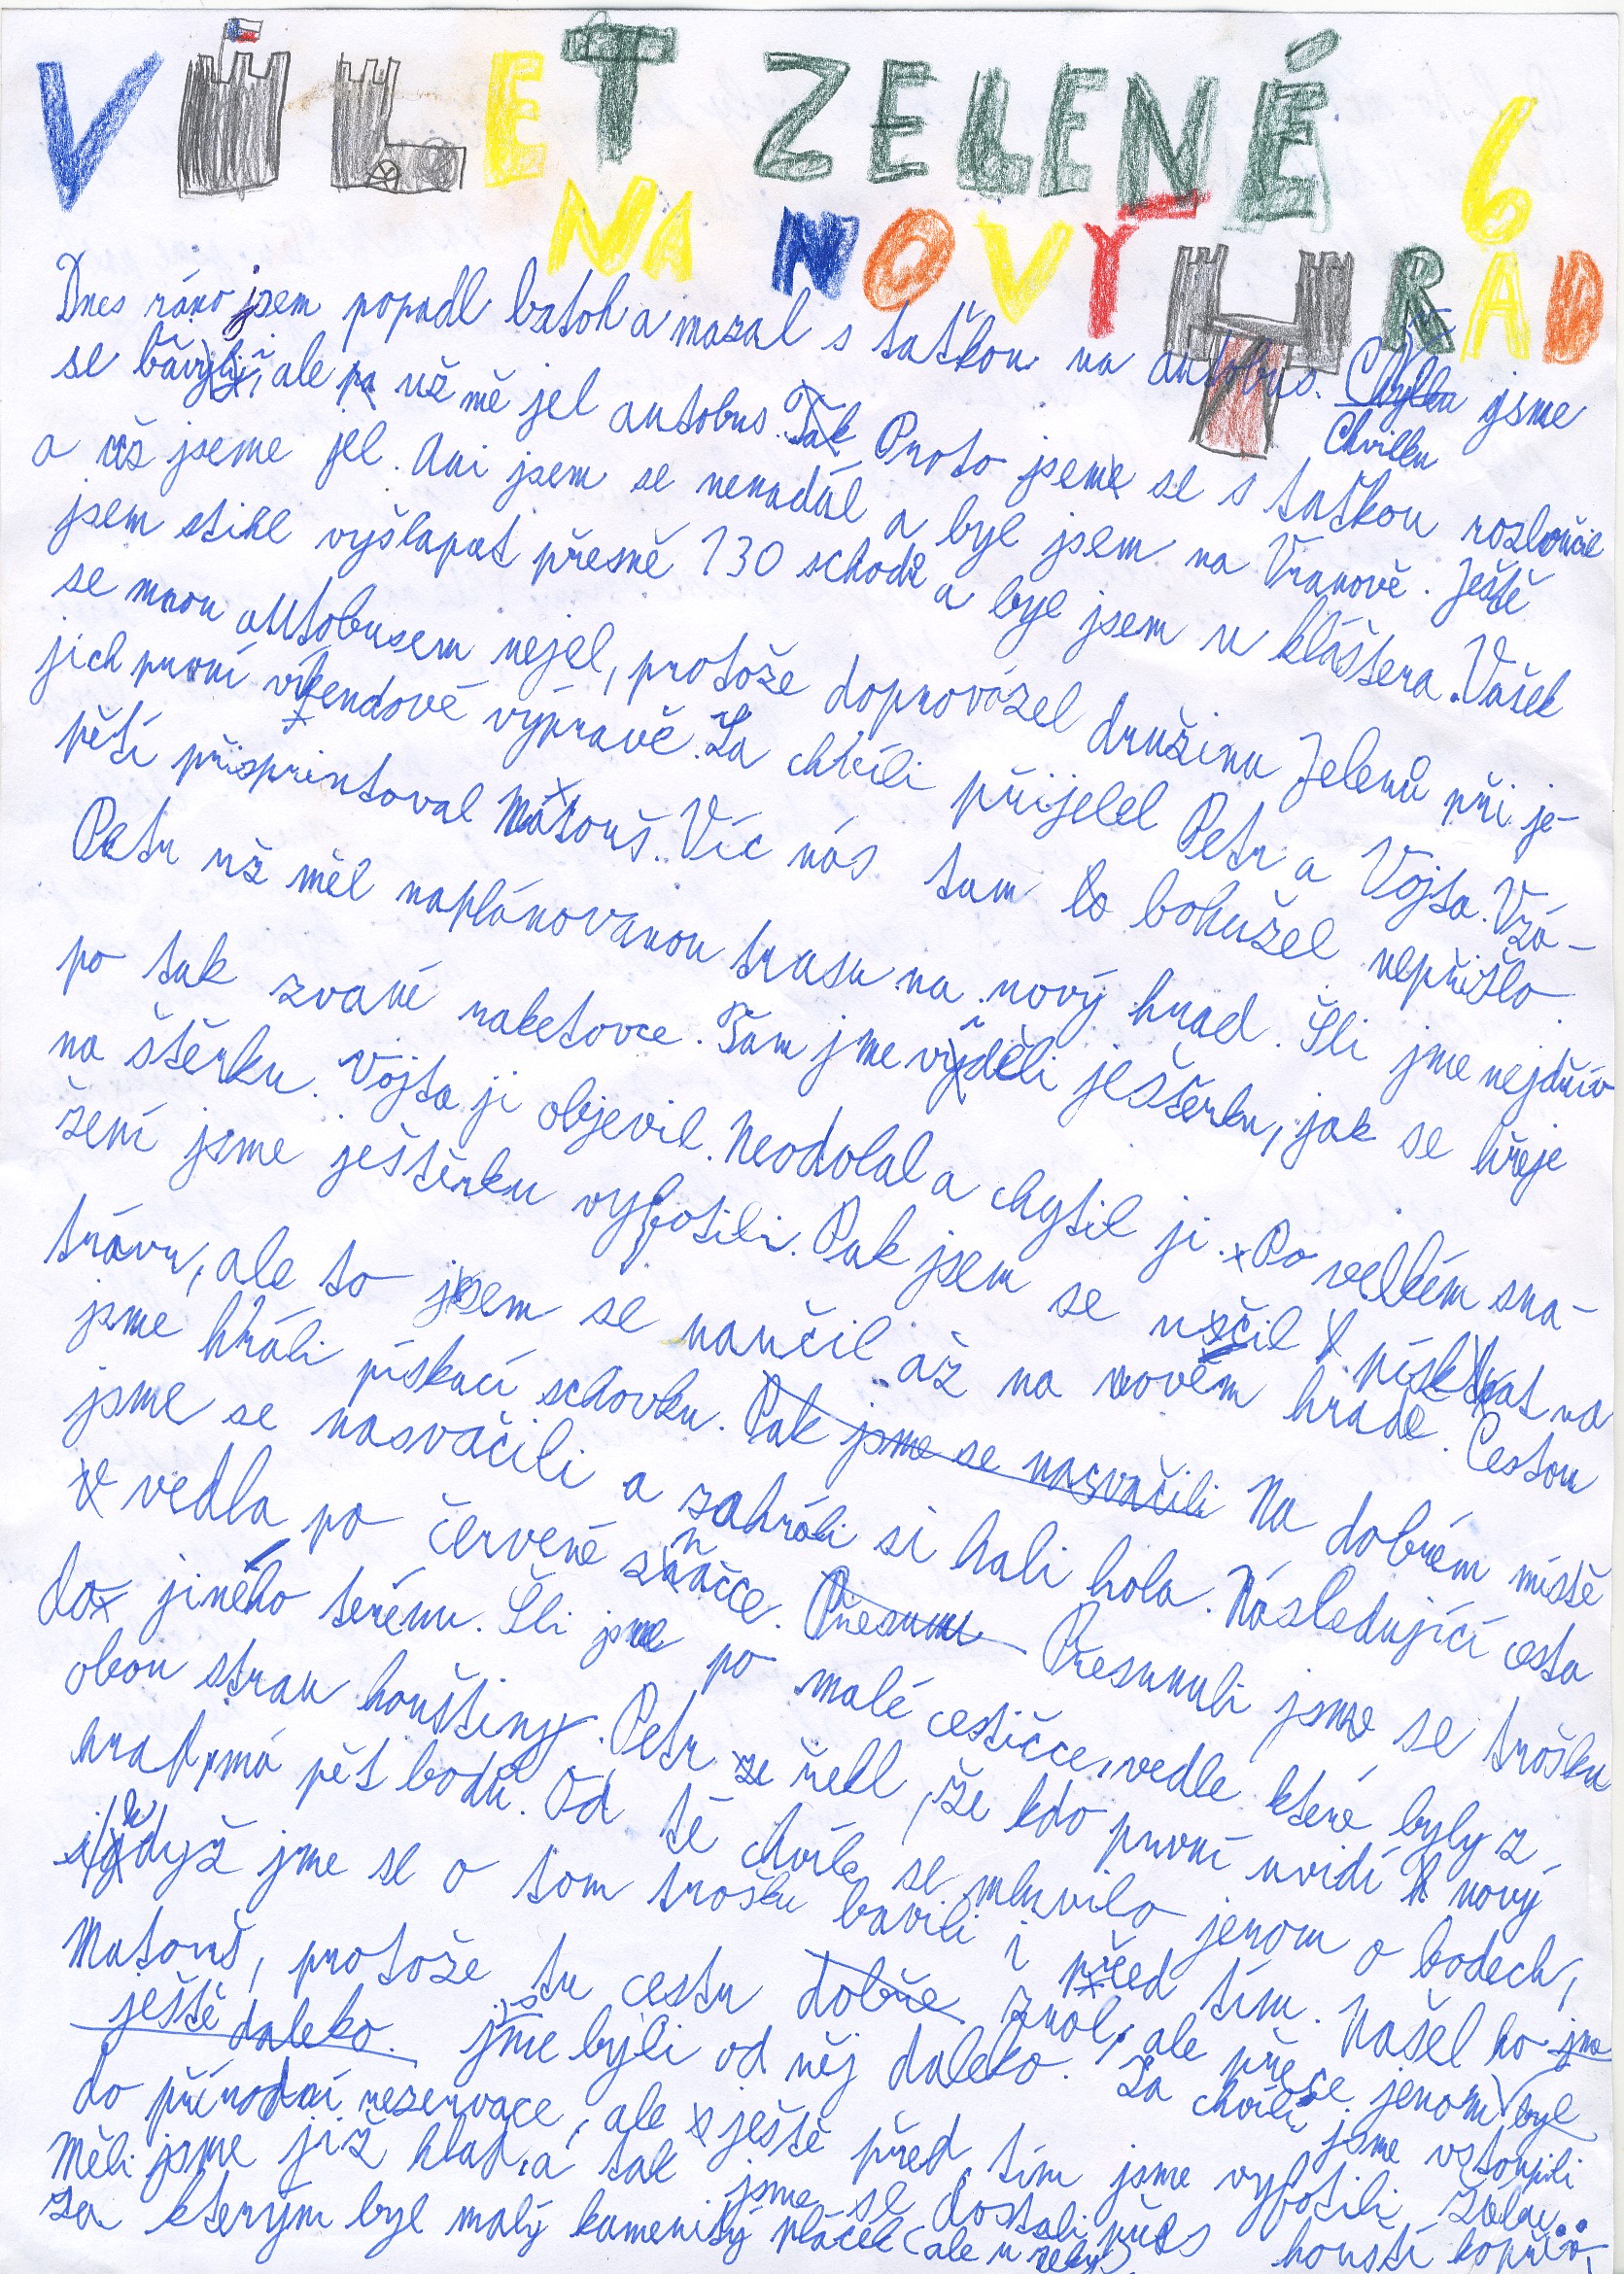 VÍLET ZELENÉ 6
NA NOVÝ HRAD
Dnes ráno jsem popadl batoh a mazal s taťkou na autobus. Chvilku jsme
se bavili, ale už mě jel autobus. Proto jsem se s taťkou rozloučil
a už jseme jel. Ani jsem se nenadál a byl jsem na Vranově. Ještě
jsem stihl vyšlapat přesně 130 schodů a byl jsem u kláštera. Vašek
se mnou autobusem nejel, protože doprovázel družinu Jelenů při je-
jich první víkendové výpravě. Za chvíli přijelel Petr a Vojta. Vzá-
pětí přisprintoval Matouš. Víc nás tam bohužel nepřišlo.
Petr už měl naplánovanou trasu na nový hrad. Šli jme nejdřív
po tak zvané raketovce. Tam jme viděli ještěrku, jak se hřeje
na štěrku. Vojta ji objevil. Neodolal a chytil ji. Po velkém sna-
žení jsme ještěrku vyfotili. Pak jsem se učil pískat na
trávu, ale to jsem se naučil až na novém hradě. Cestou
jsme hráli pískací schovku. Pak jsme se nasvačili Na dobrém místě
jsme se nasvačili a zahráli si hali hola. Následující cesta
vedla po červené značce. Přesunuli jsme se trošku
do jiného terénu. Šli jsme po malé cestičce, vedle které byly z
obou stran houštiny. Petr řekl, že kdo první uvidí nový
hrad, má pět bodů. Od té chvíle se mluvilo jenom o bodech,
i když jme se o tom trošku bavili i před tím. Našel ho jme
Matouš, protože tu cestu dobře znal, ale přece jenom byl
ještě daleko. jsme byli od něj daleko. Za chvíli jsme vstoupili
do přírodní rezervace, ale ještě před tím jsme vyfotili
Měli jsme již hlad, a tak jsme se dostali přes houští kopřiv,
za kterým byl malý kamenitý plácek (ale u řeky)